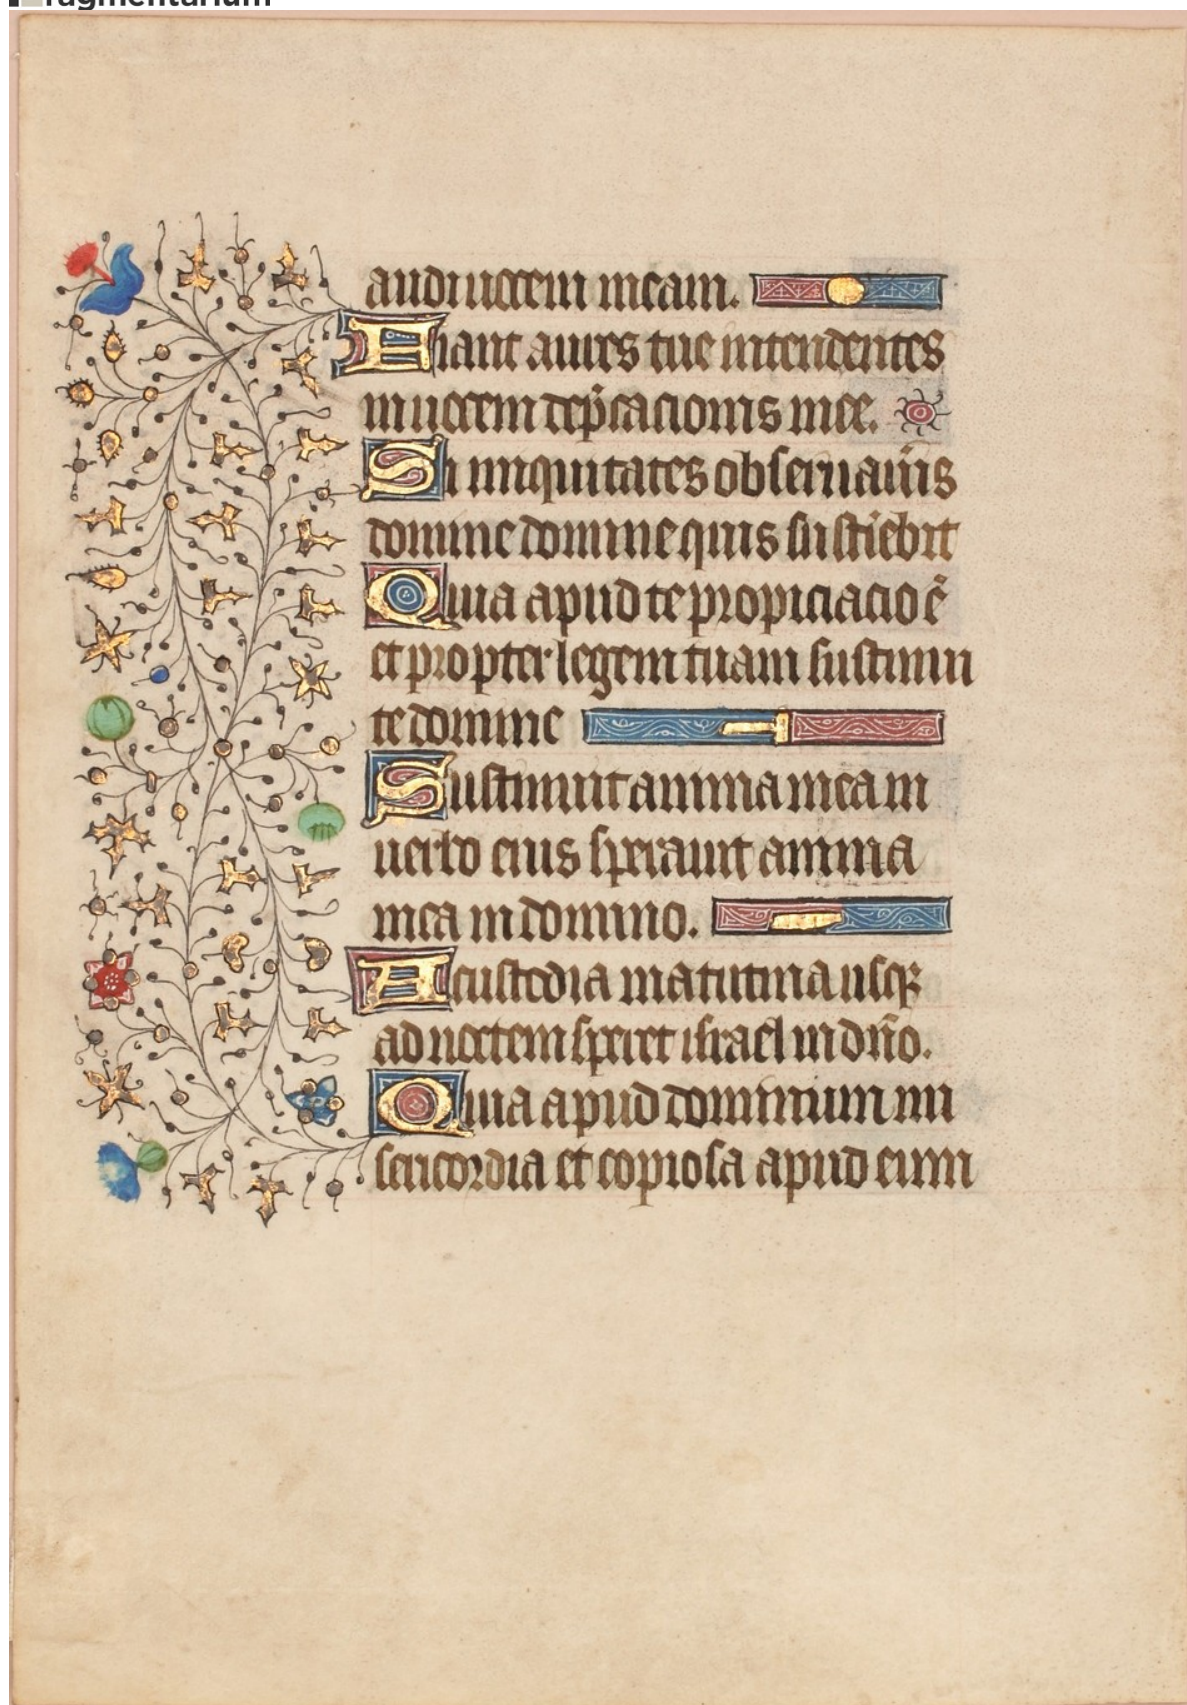 ragmentarium
audi uocem meam.
Fiant aures tue intendentes
in uocem dep̃cacionis mee.
Si iniquitates obseruaũis
domine domine quis sustĩebit
Quia apud te propiciacio ẽ
et propter legem tuam sustinui
te domine
Sustinuit anima mea in
uerbo eius sperauit anima
mea in domino.
A custodia matutina usqꝫ
ad noctem speret israel in dño.
Quia apud dominum mi
sericordia et copiosa apud eum